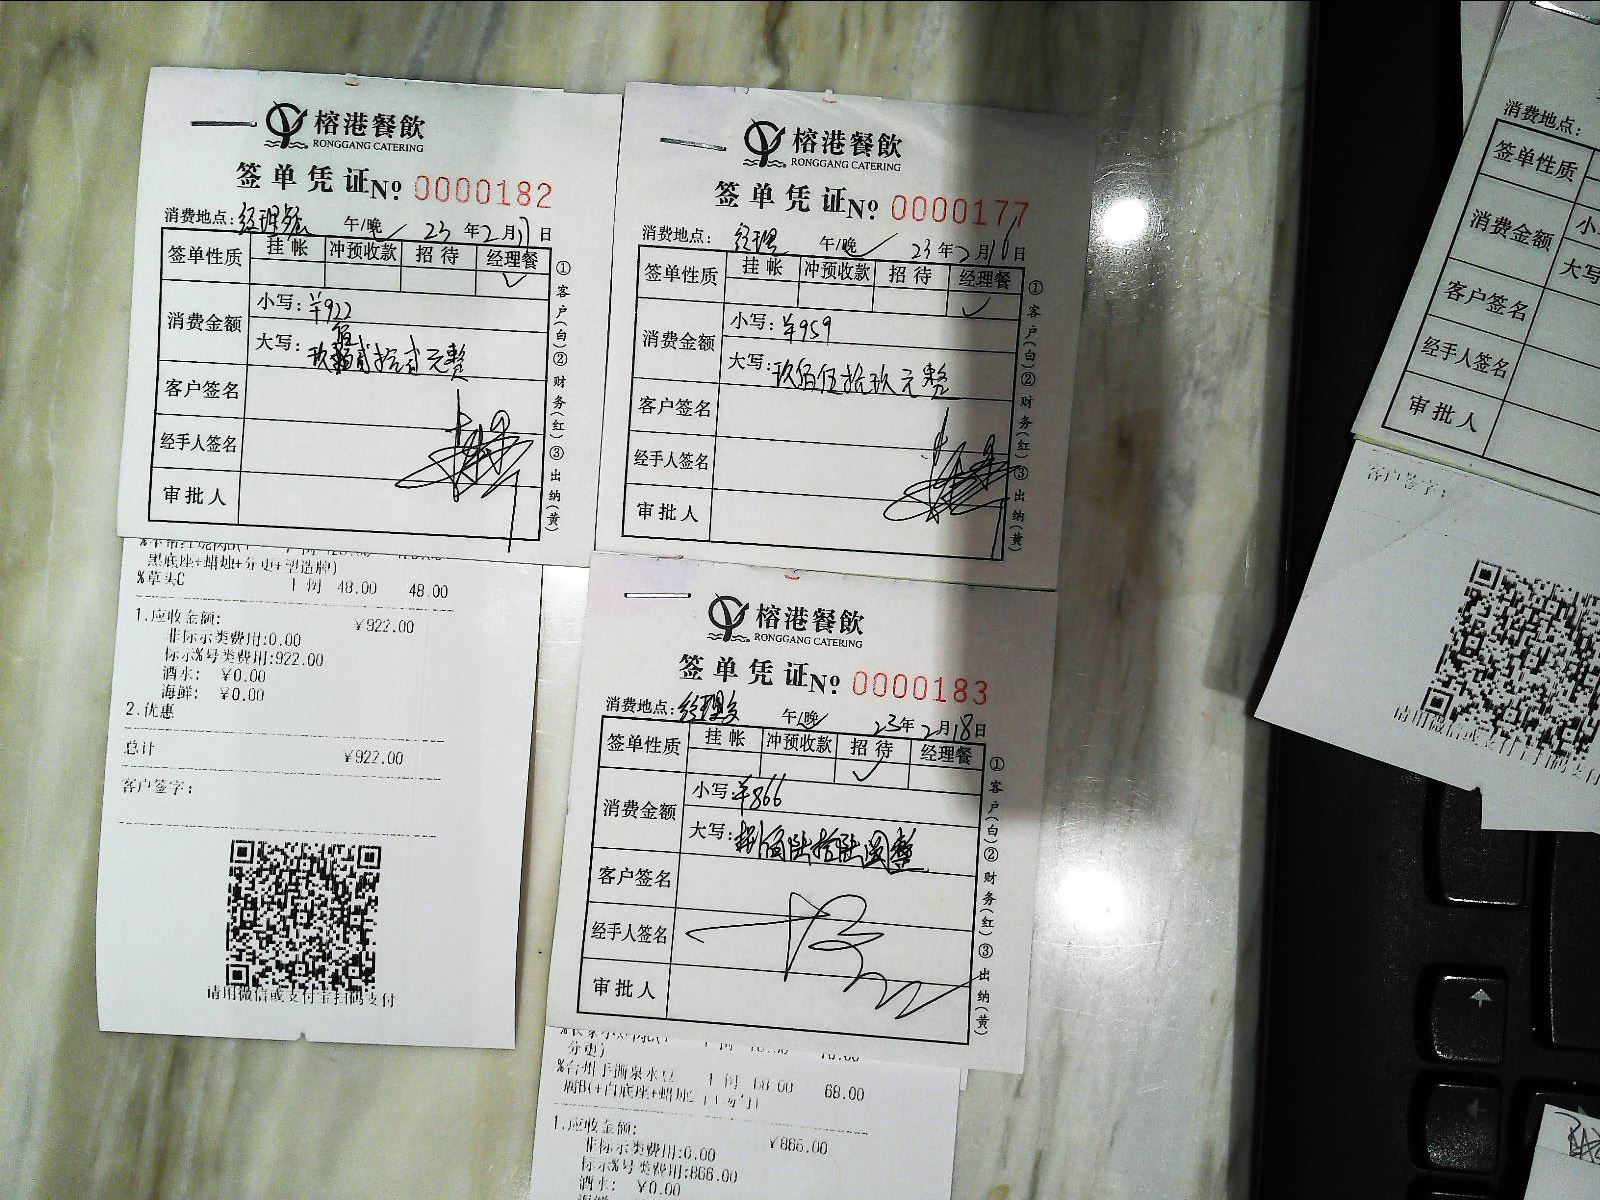 榕港餐飲
RONGGANG CATERING
签单凭证 No 0000182
消费地点: 经理餐 午/晚 23年2月17日
签单性质 挂帐 冲预收款 招待 经理餐 ✓
消费金额 小写: ¥922
大写: 玖佰贰拾贰元整
客户签名
经手人签名
审批人
①客户(白)②财务(红)③出纳(黄)
黑底座+蜡烛+分更+塑造牌)
%草头C 1 例 48.00 48.00
1.应收金额: ¥922.00
非标示类费用:0.00
标示%号类费用:922.00
酒水: ¥0.00
海鲜: ¥0.00
2.优惠
总计 ¥922.00
客户签字:
请用微信或支付宝扫码支付
榕港餐飲
RONGGANG CATERING
签单凭证 No 0000177
消费地点: 经理 午/晚 23年2月16日
签单性质 挂帐 冲预收款 招待 经理餐 ✓
消费金额 小写: ¥959
大写: 玖佰伍拾玖元整
客户签名
经手人签名
审批人
①客户(白)②财务(红)③出纳(黄)
榕港餐飲
RONGGANG CATERING
签单凭证 No 0000183
消费地点: 经理 午/晚 23年2月18日
签单性质 挂帐 冲预收款 招待 ✓ 经理餐
消费金额 小写: ¥866
大写: 捌佰陆拾陆圆整
客户签名
经手人签名
审批人
①客户(白)②财务(红)③出纳(黄)
分更)
%台州手 1 例 68.00 68.00
1.应收金额: ¥866.00
非标示类费用:0.00
标示%号类费用:866.00
酒水: ¥0.00
消费地点:
签单性质
消费金额 小
大写
客户签名
经手人签名
审批人
客户签字:
请用微信或支付宝扫码支付